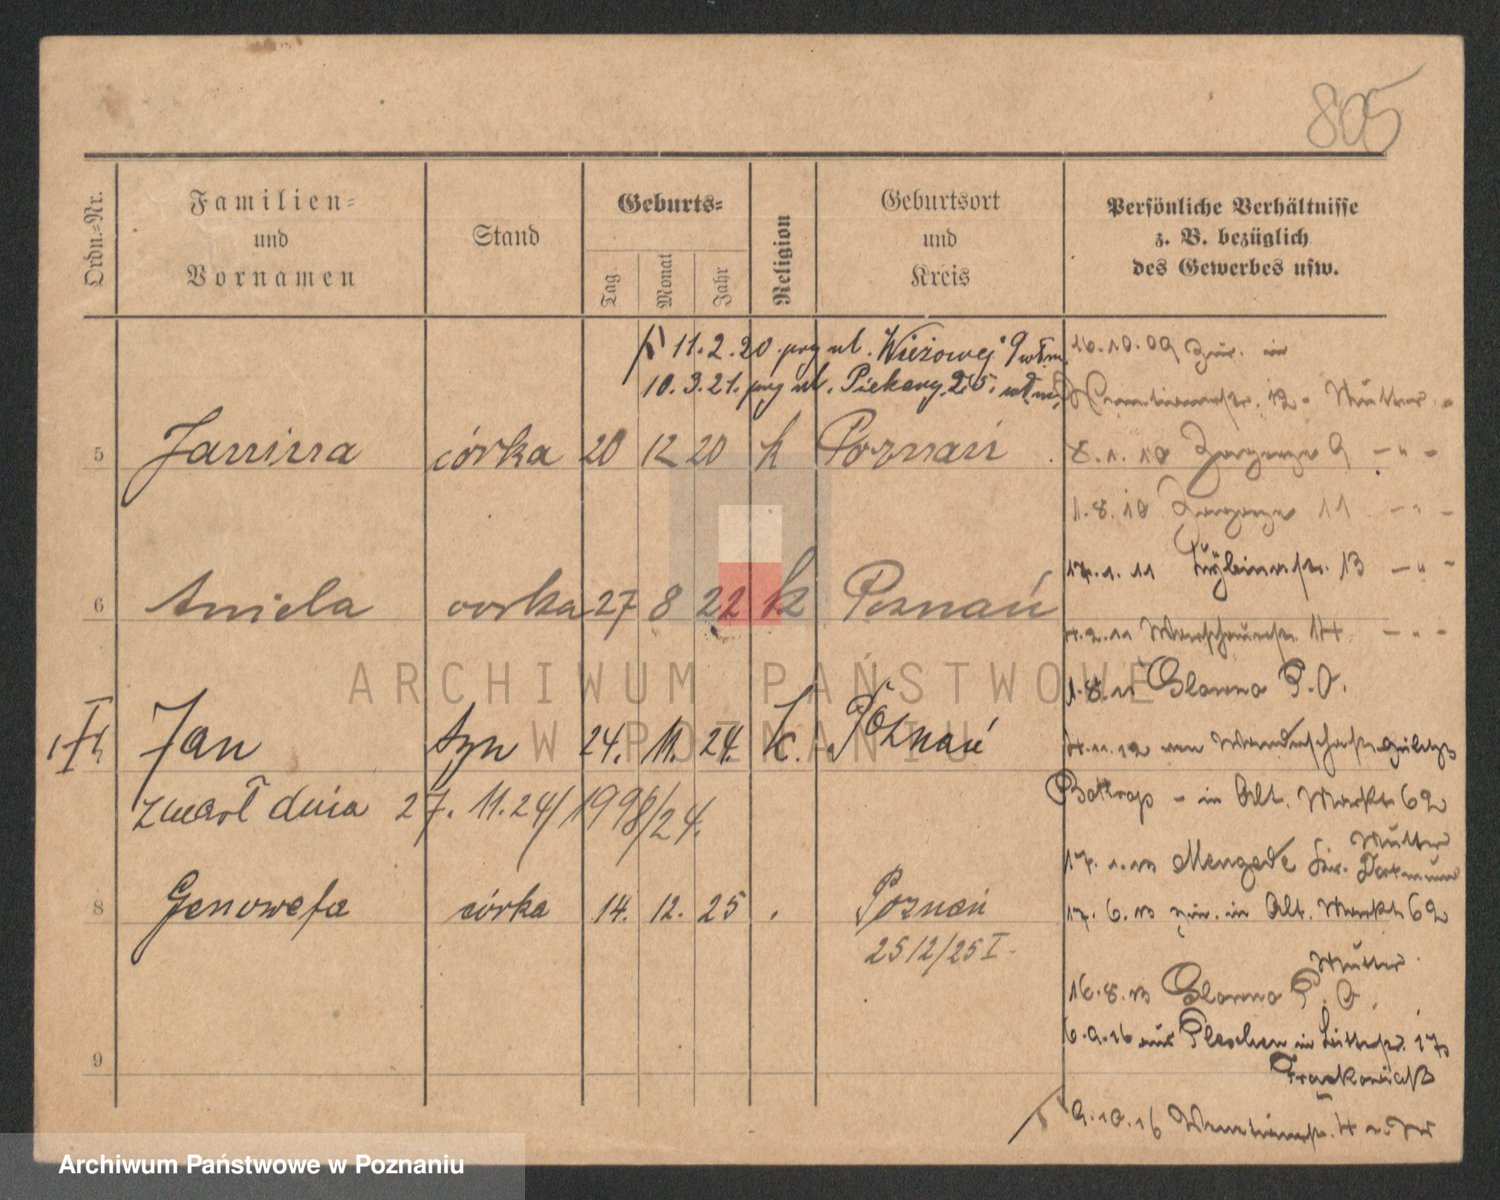 805
Ordn.-Nr.
Familien-
und
Vornamen
Stand
Geburts-
Tag
Monat
Jahr
Religion
Geburtsort
und
Kreis
Persönliche Verhältnisse
z. B. bezüglich
des Gewerbes usw.
11.2.20. przy ul. Wieżowej 9
10.3.21. przy ul. Piekary 25.
5 Janina córka 20 12 20 k Poznań
6 Aniela córka 27 8 22 k Poznań
Jan syn 24. 11. 24. k. Poznań
zmarł dnia 27. 11. 24/1998/24.
8 Genowefa córka 14. 12. 25 Poznań
25 12/25 I.
9
16.10.09 in
12 - Mutter -
8.1.10 9 - " -
1.8.10 11 - " -
17.1.11 13 - " -
4.2.11 Warschauerstr. 14 - " -
1.8.11 Glowno P.O.
Bottrop - in Alt. Markt 62
Mutter
17.1.13 Mengede Dortmund
17.6.13 in Alt. Markt 62
Mutter
16.8.13 Glowno P.O.
6.9.16 aus Pleschen in 17
9.10.16
ARCHIWUM PAŃSTWOWE
W POZNANIU
Archiwum Państwowe w Poznaniu